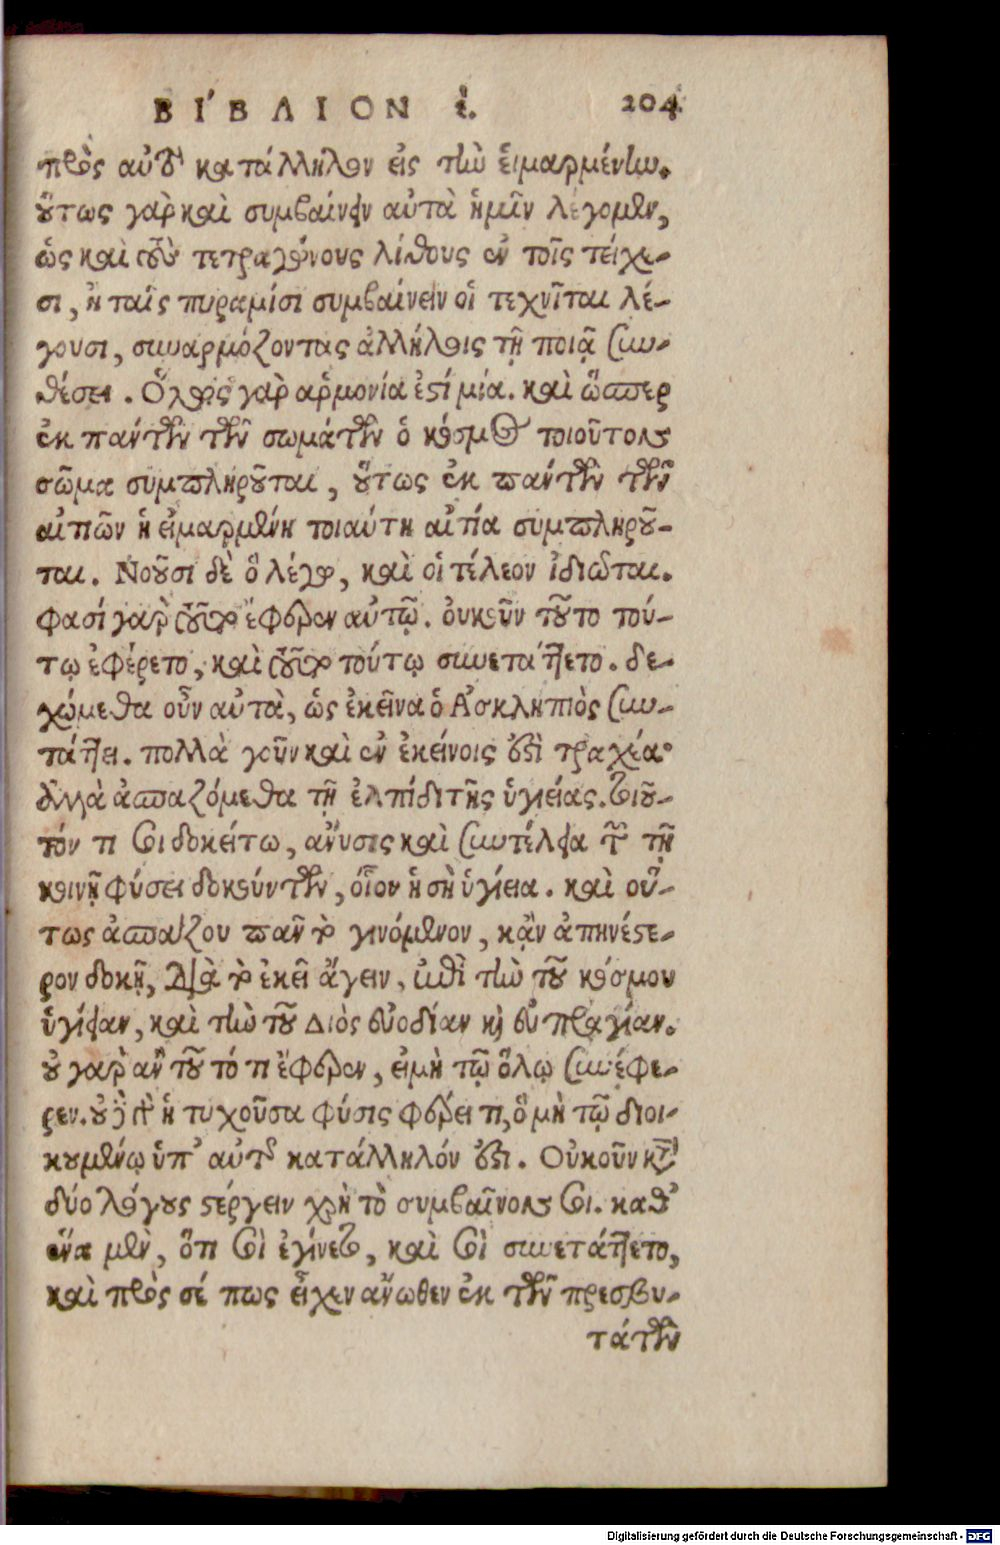 ΒΙΒΛΙΟΝ ἐ. 204
πρὸς αὐτοῦ κατάλληλον εἰς τὴν εἱμαρμένην.
οὕτως γὰρ καὶ συμβαίνειν αὐτὰ ἡμῖν λέγομεν,
ὡς καὶ τοὺς τετραγώνους λίθους ἐν τοῖς τείχε-
σι, ἢ ταῖς πυραμίσι συμβαίνειν οἱ τεχνῖται λέ-
γουσι, συναρμόζοντας ἀλλήλοις τῇ ποιᾷ συν-
θέσει. Ὅλως γὰρ ἁρμονία ἐστὶ μία. καὶ ὥσπερ
ἐκ πάντων τῶν σωμάτων ὁ κόσμος τοιοῦτον
σῶμα συμπληροῦται, οὕτως ἐκ πάντων τῶν
αἰτιῶν ἡ εἱμαρμένη τοιαύτη αἰτία συμπληροῦ-
ται. Νοοῦσι δὲ ὃ λέγω, καὶ οἱ τέλεον ἰδιῶται.
φασὶ γὰρ τοῦτο ἔφερεν αὐτῷ. οὐκοῦν τοῦτο τού-
τῳ ἐφέρετο, καὶ τοῦτο τούτῳ συνετάττετο. δε-
χώμεθα οὖν αὐτὰ, ὡς ἐκεῖνα ὁ Ἀσκληπιὸς συν-
τάττει. πολλὰ γοῦν καὶ ἐν ἐκείνοις ἐστὶ τραχέα·
ἀλλὰ ἀσπαζόμεθα τῇ ἐλπίδι τῆς ὑγιείας. τοιοῦ-
τόν τι σοι δοκείτω, ἄνυσις καὶ συντέλεια τῶν τῇ
κοινῇ φύσει δοκούντων, οἷον ἡ σὴ ὑγίεια. καὶ οὕ-
τως ἀσπάζου πᾶν τὸ γινόμενον, κἂν ἀπηνέστε-
ρον δοκῇ, διὰ τὸ ἐκεῖ ἄγειν, ἐπὶ τὴν τοῦ κόσμου
ὑγίειαν, καὶ τὴν τοῦ Διὸς εὐοδίαν καὶ εὐπραγίαν.
οὐ γὰρ ἂν τοῦτό τι ἔφερεν, εἰ μὴ τῷ ὅλῳ συνέφε-
ρεν. οὐδὲ γὰρ ἡ τυχοῦσα φύσις φέρει τι, ὃ μὴ τῷ διοι-
κουμένῳ ὑπ' αὐτῆς κατάλληλόν ἐστι. Οὐκοῦν κατὰ
δύο λόγους στέργειν χρὴ τὸ συμβαῖνόν σοι. καθ'
ἕνα μὲν, ὅτι σοὶ ἐγίνετο, καὶ σοὶ συνετάττετο,
καὶ πρὸς σέ πως εἶχεν ἄνωθεν ἐκ τῶν πρεσβυ-
τάτων
Digitalisierung gefördert durch die Deutsche Forschungsgemeinschaft - DFG